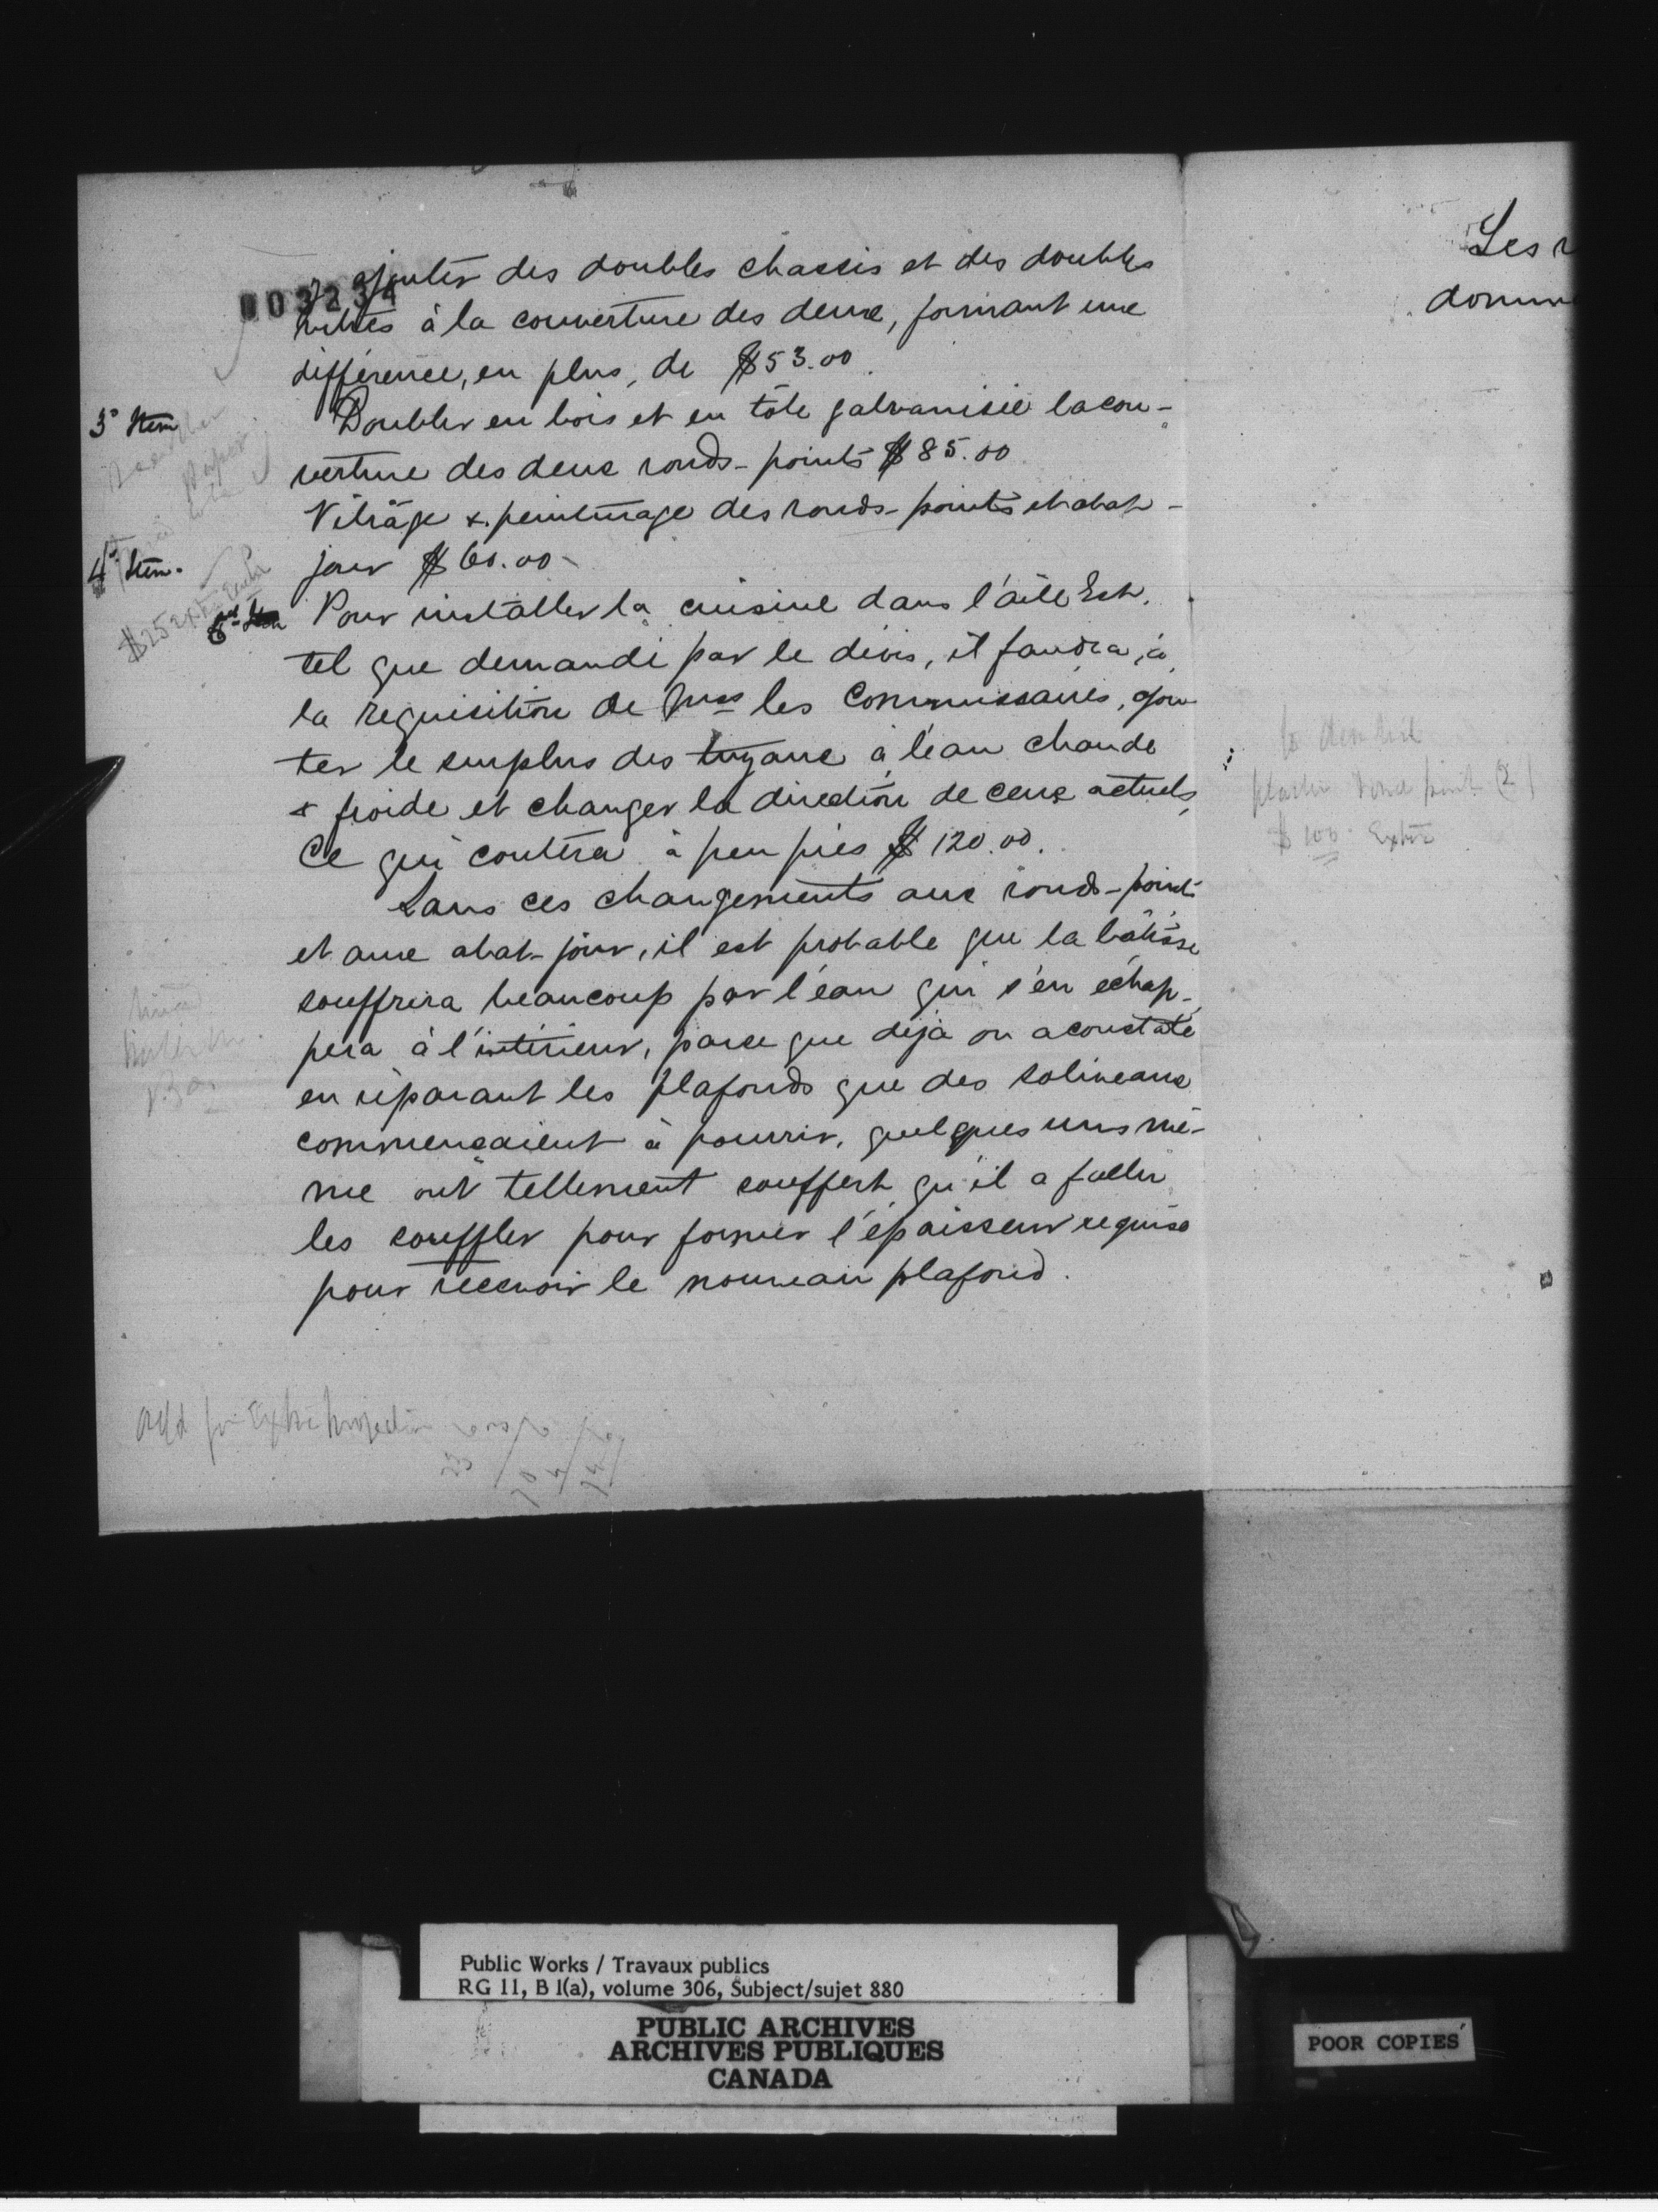 003234
y ajouter des doubles chassis et des doubles
vitres à la couverture des deux, formant une
différence, en plus, de $53.00.
3° Item
Doubler en bois et en tôle galvanisée la cou-
verture des deux ronds-points $85.00
Vitrâge & peinturage des ronds-points et abat-
4° Item.
jour $60.00
Pour installer la cuisine dans l'aîle Est,
tel que demandé par le dévis, il faudra, à
la requisition de Mrs les Commissaires, ajou
ter le surplus des tuyaux à l'eau chaude
& froide et changer la direction de ceux actuels,
Ce qui coutera à peu près $120.00.
Sans ces changements aux ronds-points
et aux abat-jour, il est probable que la bâtisse
souffrira beaucoup par l'eau qui s'en échap-
pera à l'intérieur, parce que déjà on a constaté
en réparant les plafonds que des soliveaux
commençaient à pourrir, quelques uns mê-
me ont tellement souffert qu'il a fallu
les souffler pour former l'épaisseur requise
pour recevoir le nouveau plafond.
Add for Extra
Les
rond point (2)
$100 Extra
Public Works / Travaux publics
RG 11, B 1(a), volume 306, Subject/sujet 880
PUBLIC ARCHIVES
ARCHIVES PUBLIQUES
CANADA
POOR COPIES